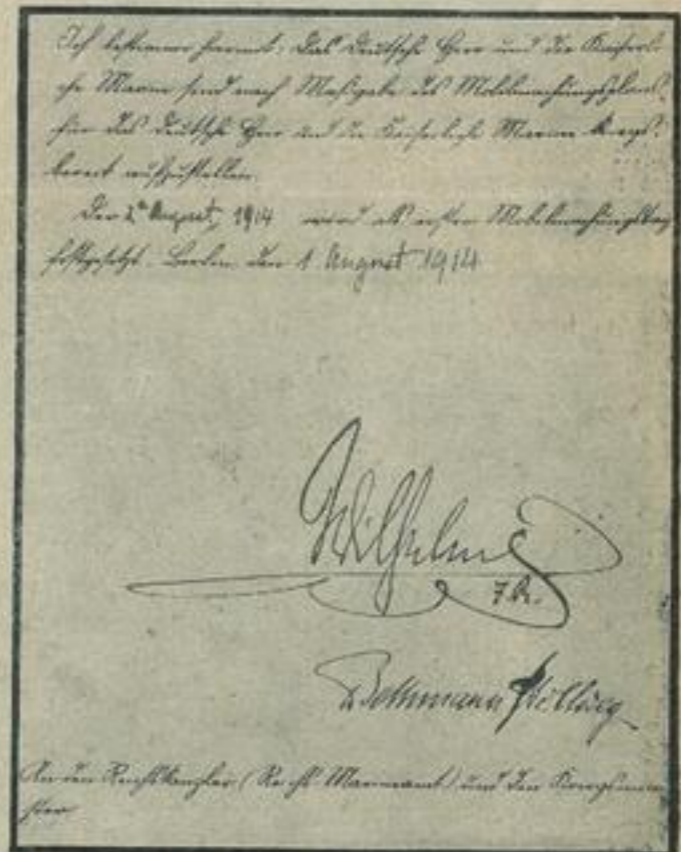 Ich bestimme hiermit: Das Deutsche Heer und die Kaiserli-
che Marine sind nach Maßgabe des Mobilmachungsplans
für das Deutsche Heer und die Kaiserliche Marine kriegs-
bereit aufzustellen.
Der 2te August 1914 wird als erster Mobilmachungstag
festgesetzt. Berlin, den 1. August 1914
Wilhelm
I.R.
Bethmann Hollweg
An den Reichskanzler (Reichs-Marineamt) und den Kriegsmini-
ster